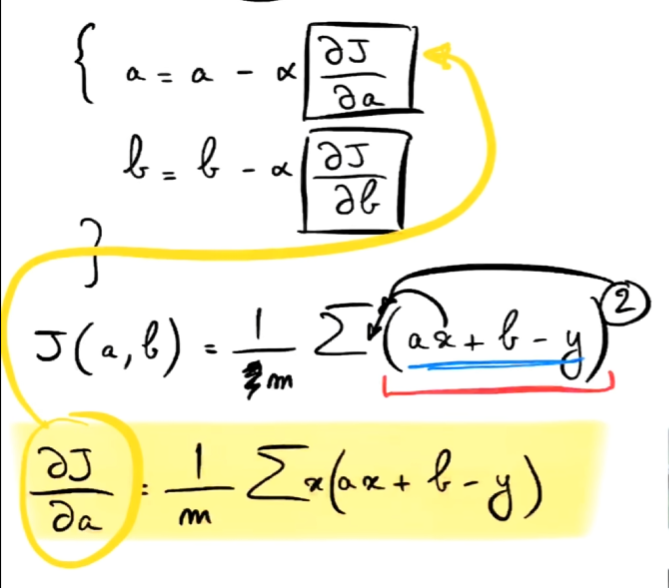 { a = a - α ∂J/∂a
b = b - α ∂J/∂b
}
J(a,b) = 1/m Σ(ax + b - y)²
∂J/∂a = 1/m Σx(ax + b - y)